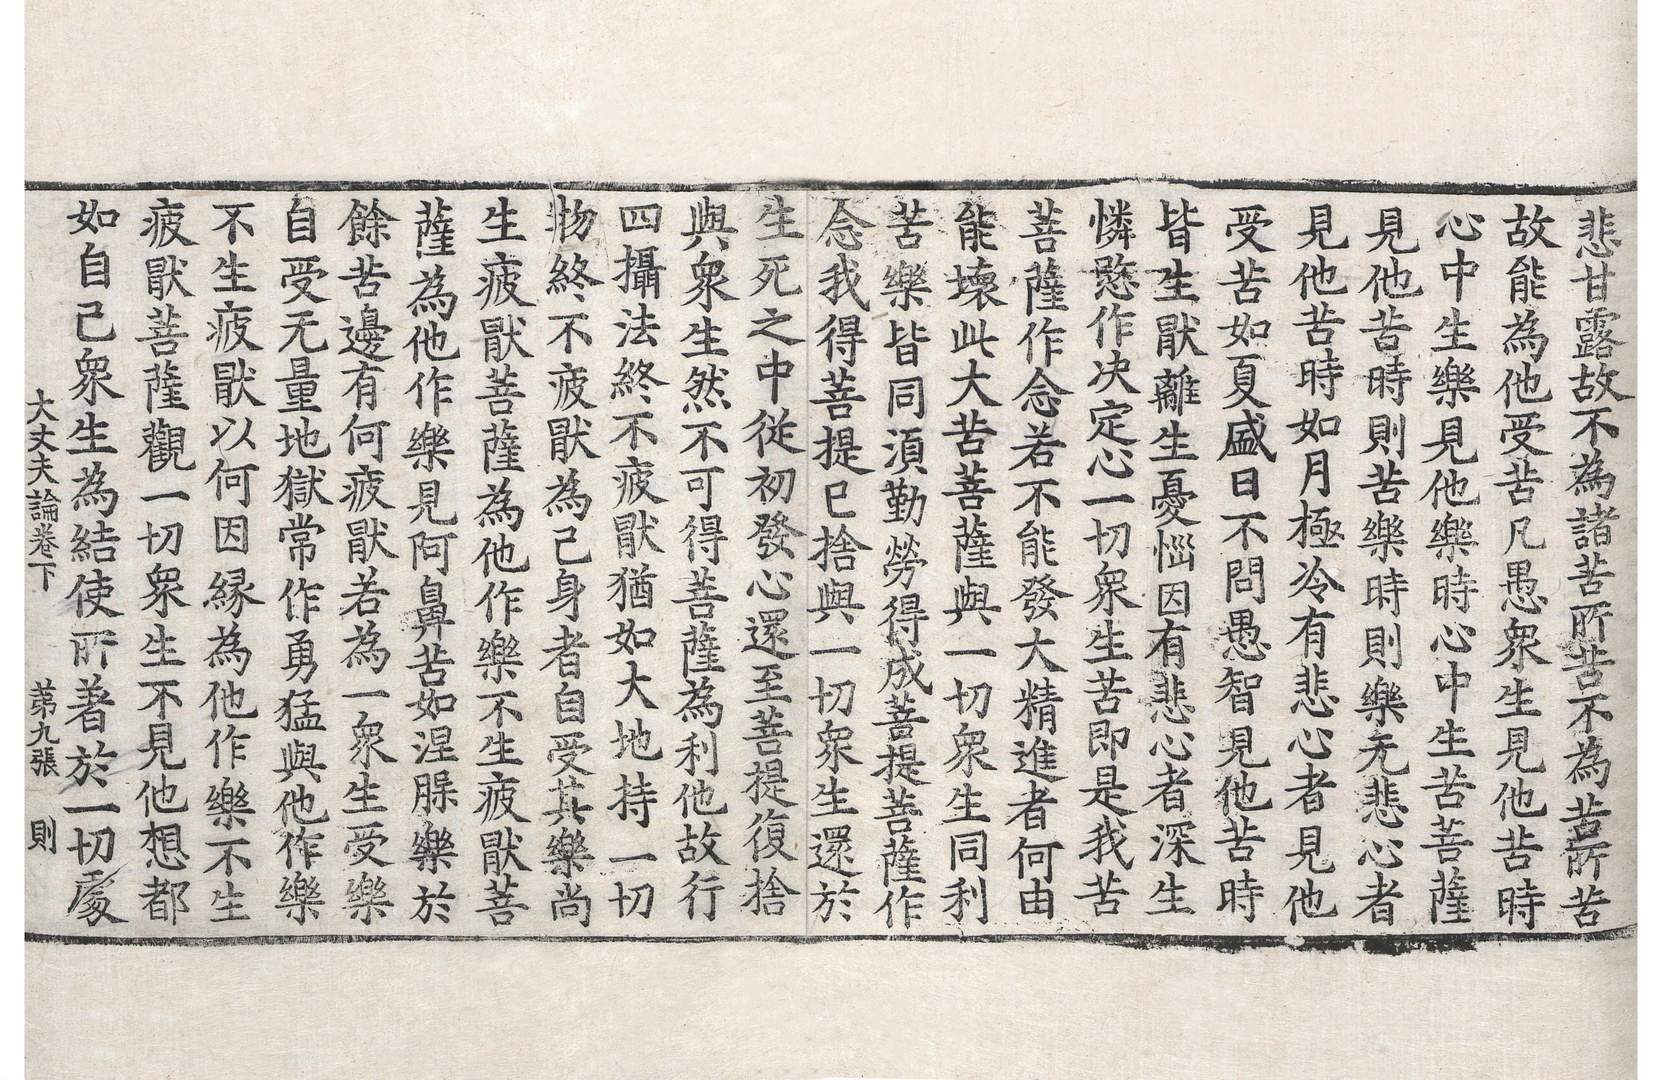 悲甘露故不為諸苦所苦不為苦所苦
故能為他受苦凡愚衆生見他苦時
心中生樂見他樂時心中生苦菩薩
見他苦時則苦樂時則樂无悲心者
見他苦時如月極冷有悲心者見他
受苦如夏盛日不問愚智見他苦時
皆生猒離生憂惱因有悲心者深生
憐愍作决定心一切衆生苦即是我苦
菩薩作念若不能發大精進者何由
能壞此大苦菩薩與一切衆生同利
苦樂皆同須勤勞得成菩提菩薩作
念我得菩提已捨與一切衆生還於
生死之中從初發心還至菩提復捨
與衆生然不可得菩薩為利他故行
四攝法終不疲猒猶如大地持一切
物終不疲猒為己身者自受其樂尚
生疲猒菩薩為他作樂不生疲猒菩
薩為他作樂見阿鼻苦如涅槃樂於
餘苦邊有何疲猒若為一衆生受樂
自受无量地獄常作勇猛與他作樂
不生疲猒以何因緣為他作樂不生
疲猒菩薩觀一切衆生不見他想都
如自己衆生為結使所著於一切處
大丈夫論卷下 第九張 則